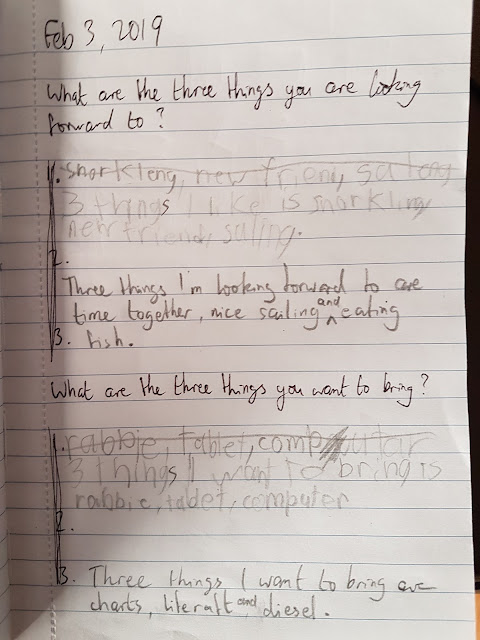 Feb 3, 2019
What are the three things you are looking
forward to?
1. snorkleng, new frieni, saileng
3 things I like is snorkling
new friend, sailing.
2.
Three things I'm looking forward to are
time together, nice sailing and eating
3. fish.
What are the three things you want to bring?
1. rabbie, tablet, computar
3 things I want to bring is
rabbie, tablet, computer
2.
3. Three things I want to bring are
charts, liferaft and diesel.